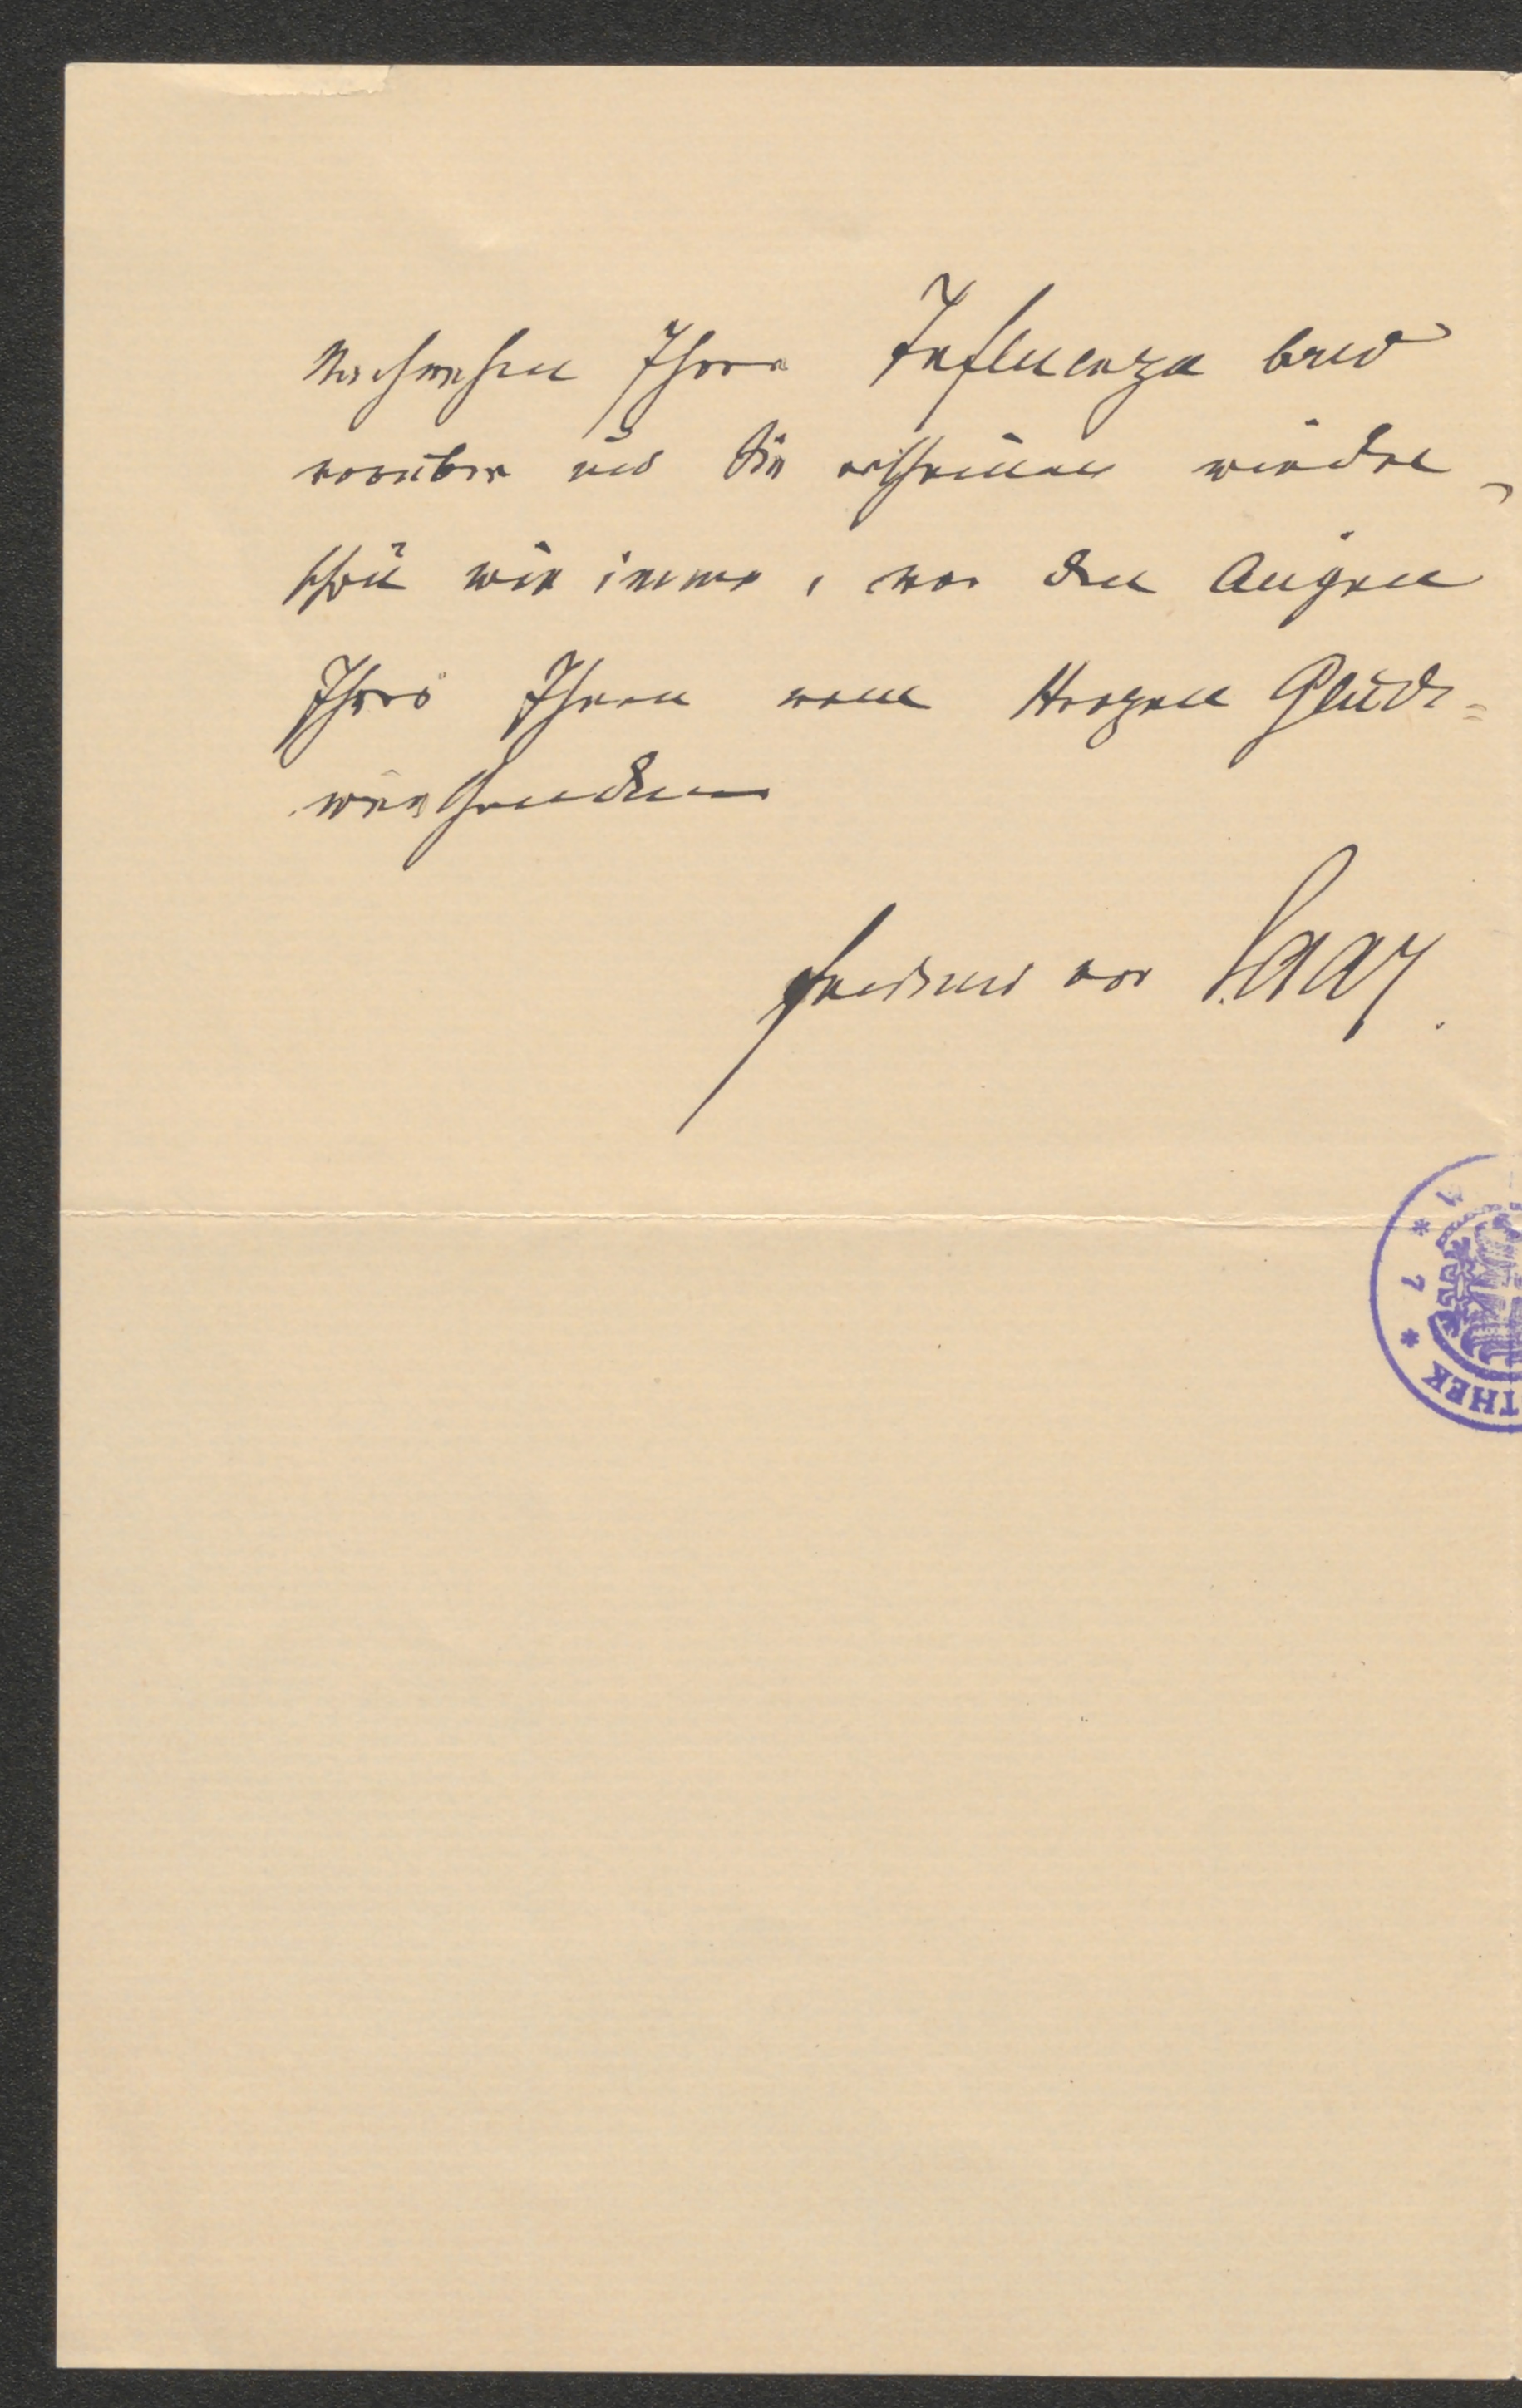 Nachwehen Ihrer Influenza bald
vorüber und Sie erscheinen wieder,
schön wie immer, vor den Augen
Ihres Ihnen vom Herzen Glück=
wünschenden
Ferdinand von Saar.
* 7 *
THEK